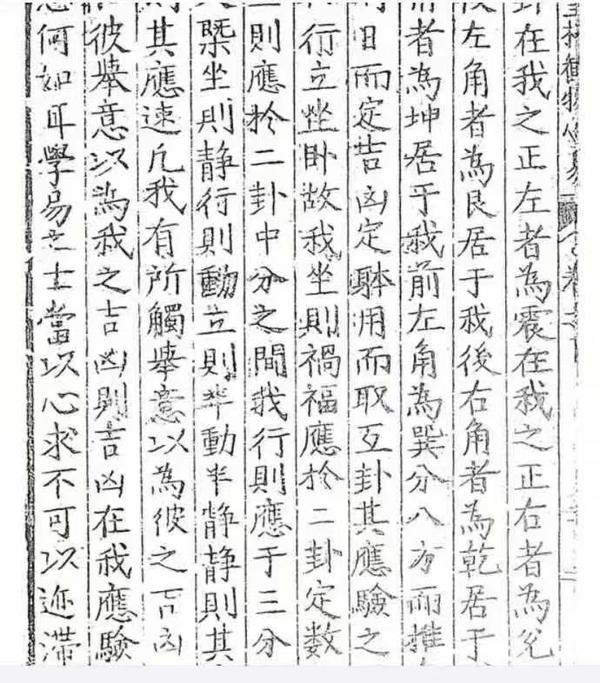 觀物
在我之正左者為震在我之正右者為兌
左角者為艮居于我後右角者為乾居于
者為坤居于我前左角為巽分八方而推
日而定吉凶定躰用而取互卦其應驗之
行立坐卧故我坐則禍福應於二卦定數
則應於二卦中分之間我行則應于三分
槩坐則静行則動立則半動半静静則其
其應速凢我有所觸舉意以為彼之吉凶
彼舉意以為我之吉凶則吉凶在我應驗
何如耳學易之士當以心求不可以迹滯